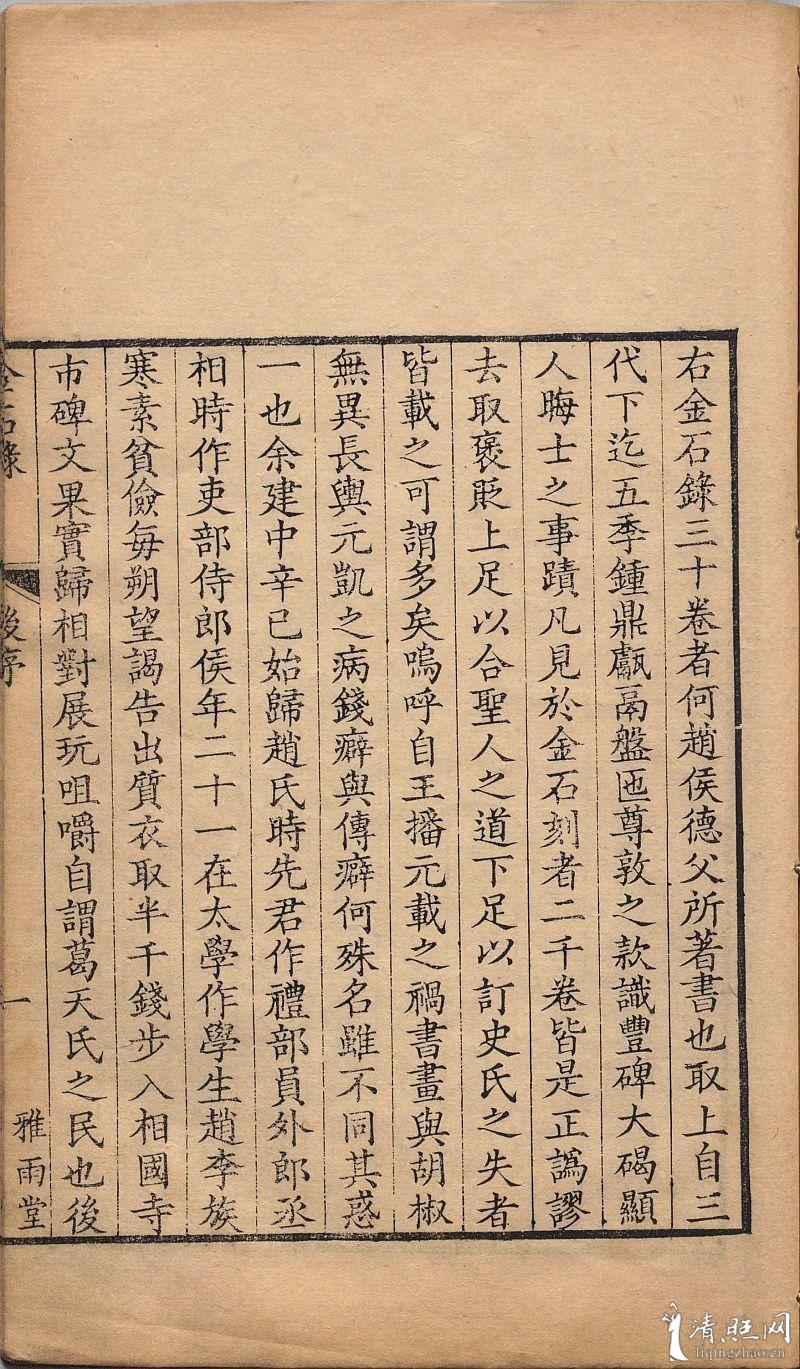 右金石錄三十卷者何趙侯德父所著書也取上自三
代下迄五季鍾鼎甗鬲盤匜尊敦之款識豐碑大碣顯
人晦士之事蹟凡見於金石刻者二千卷皆是正譌謬
去取褒貶上足以合聖人之道下足以訂史氏之失者
皆載之可謂多矣嗚呼自王播元載之禍書畫與胡椒
無異長輿元凱之病錢癖與傳癖何殊名雖不同其惑
一也余建中辛巳始歸趙氏時先君作禮部員外郎丞
相時作吏部侍郎侯年二十一在太學作學生趙李族
寒素貧儉每朔望謁告出質衣取半千錢步入相國寺
市碑文果實歸相對展玩咀嚼自謂葛天氏之民也後
金石錄 後序 一 雅雨堂
清旺网
liqingzhao.cn